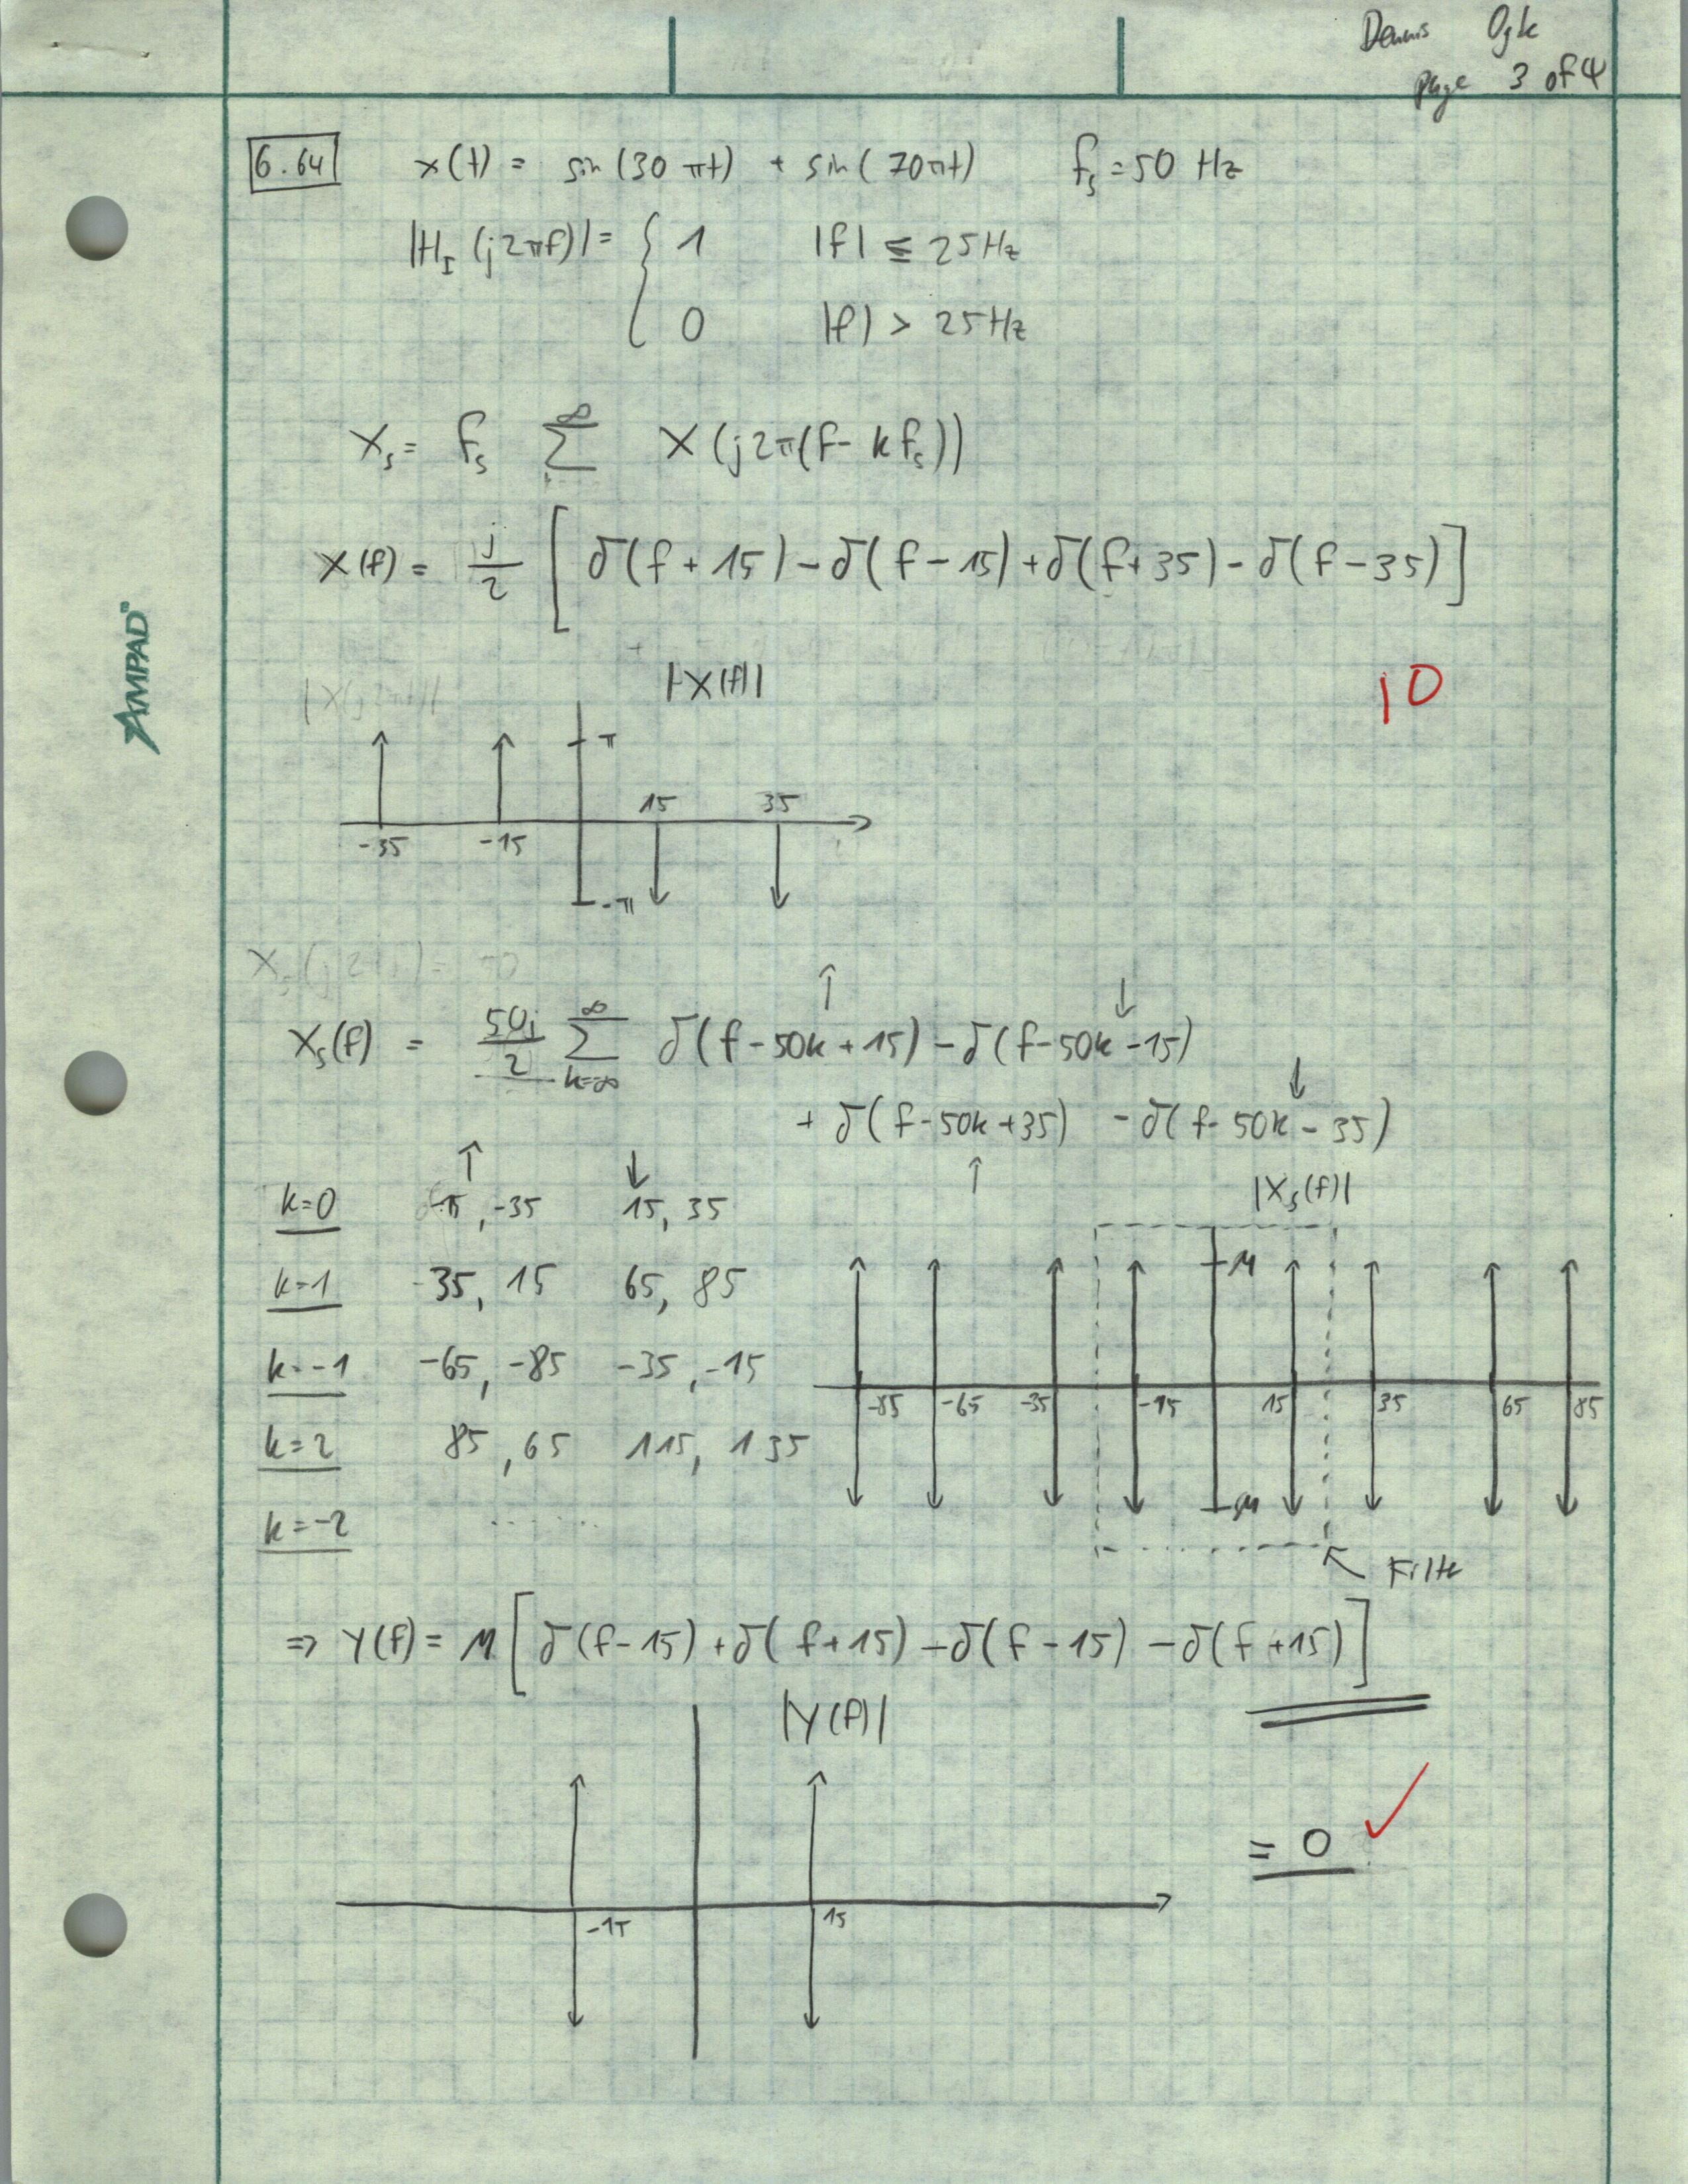 Dennis Ogk
page 3 of 4
6.64 x(t) = sin(30πt) + sin(70πt) fs = 50 Hz
|H_I(j2πf)| = { 1 |f| ≤ 25Hz
0 |f| > 25Hz
X_s = f_s ∑^∞ X(j2π(f - kf_s))
X(f) = j/2 [δ(f+15) - δ(f-15) + δ(f+35) - δ(f-35)]
|X(j2πf)| |X(f)|
10
π
15 35
-35 -15
-π
X_s(j2πf) =
↑ ↓
X_s(f) = 50j/2 ∑^∞_{k=-∞} δ(f-50k+15) - δ(f-50k-15)
↓
+ δ(f-50k+35) - δ(f-50k-35)
↑ ↓ ↑
|X_s(f)|
k=0 -15, -35 15, 35
M
k=1 -35, 15 65, 85
k=-1 -65, -85 -35, -15
-85 -65 -35 -15 15 35 65 85
k=2 85, 65 115, 135
-M
k=-2 ........
Filte
⇒ Y(f) = M [δ(f-15) + δ(f+15) - δ(f-15) - δ(f+15)]
|Y(f)|
= 0 ✓
-15 15
AMPAD